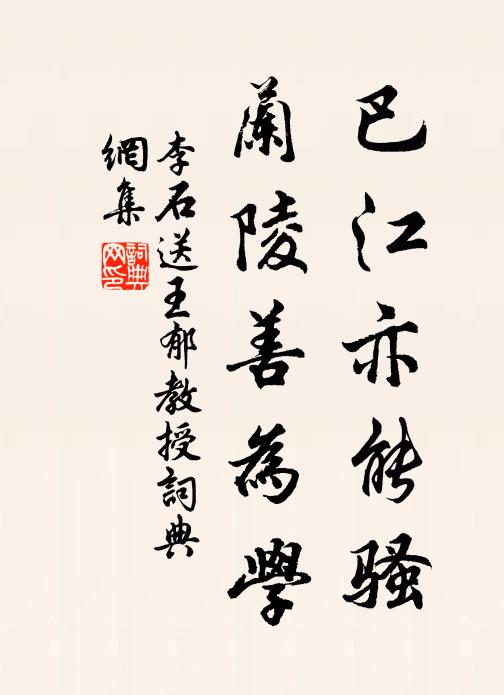 巴江亦能騷
蘭陵善為學
李石送王郁教授詞典
網集
詞典網印